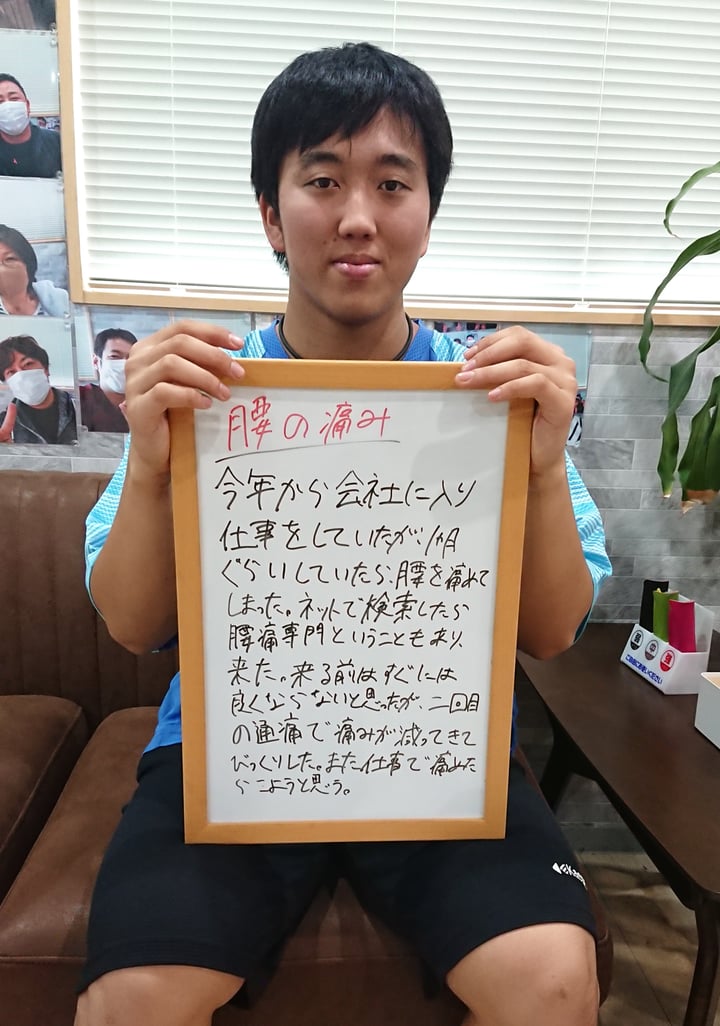 腰の痛み
今年から会社に入り
仕事をしていたが、1ヵ月
ぐらいしていたら、腰を痛めて
しまった。ネットで検索したら
腰痛専門ということもあり、
来た。来る前はすぐには
良くならないと思ったが、二回目
の通痛で痛みが減ってきて
びっくりした。また仕事で痛めた
らこようと思う。
強
中
弱